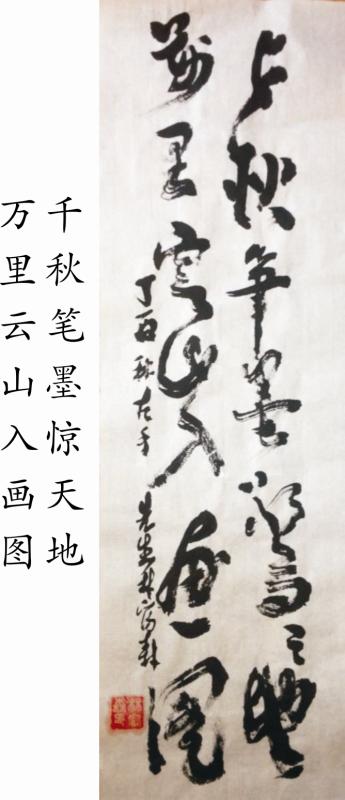 千秋笔墨惊天地
万里云山入画图
千秋笔墨惊天地
万里云山入画图
丁酉秋左手
先生林